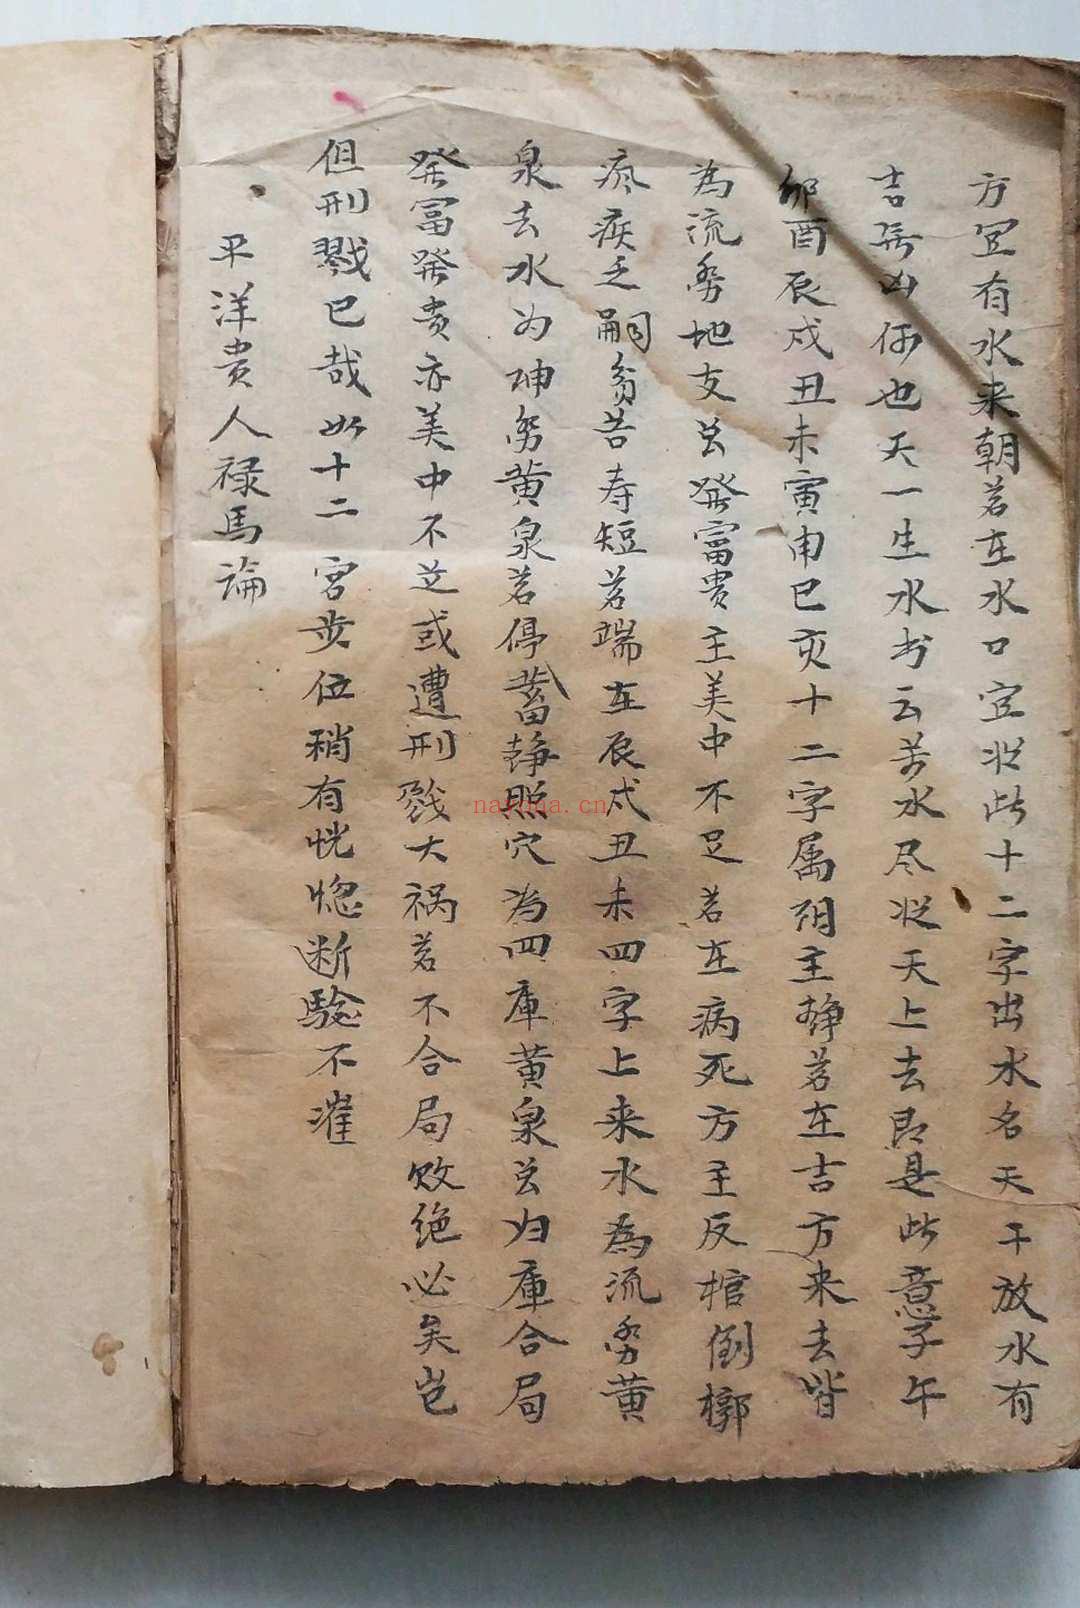 方宜有水来朝若在水口宜从此十二字出水名天干放水有
吉无凶何也天一生水书云若水尽从天上去即是此意子午
卯酉辰戍丑未寅申巳亥十二字属阴主静若在吉方来去皆
为流劳地支总發富贵主美中不足若在病死方主反棺倒槨
疯疾乏嗣翁告寿短若端在辰戍丑未四字上来水為流劳黄
泉去水为坤劳黄泉若停蓄静照穴為四庫黄泉总归庫合局
發富發贵亦美中不足或遭刑戮大祸若不合局败绝必矣岂
但刑戮已哉如十二宫步位稍有恍惚断驗不準
平洋贵人禄馬論
nayona.cn